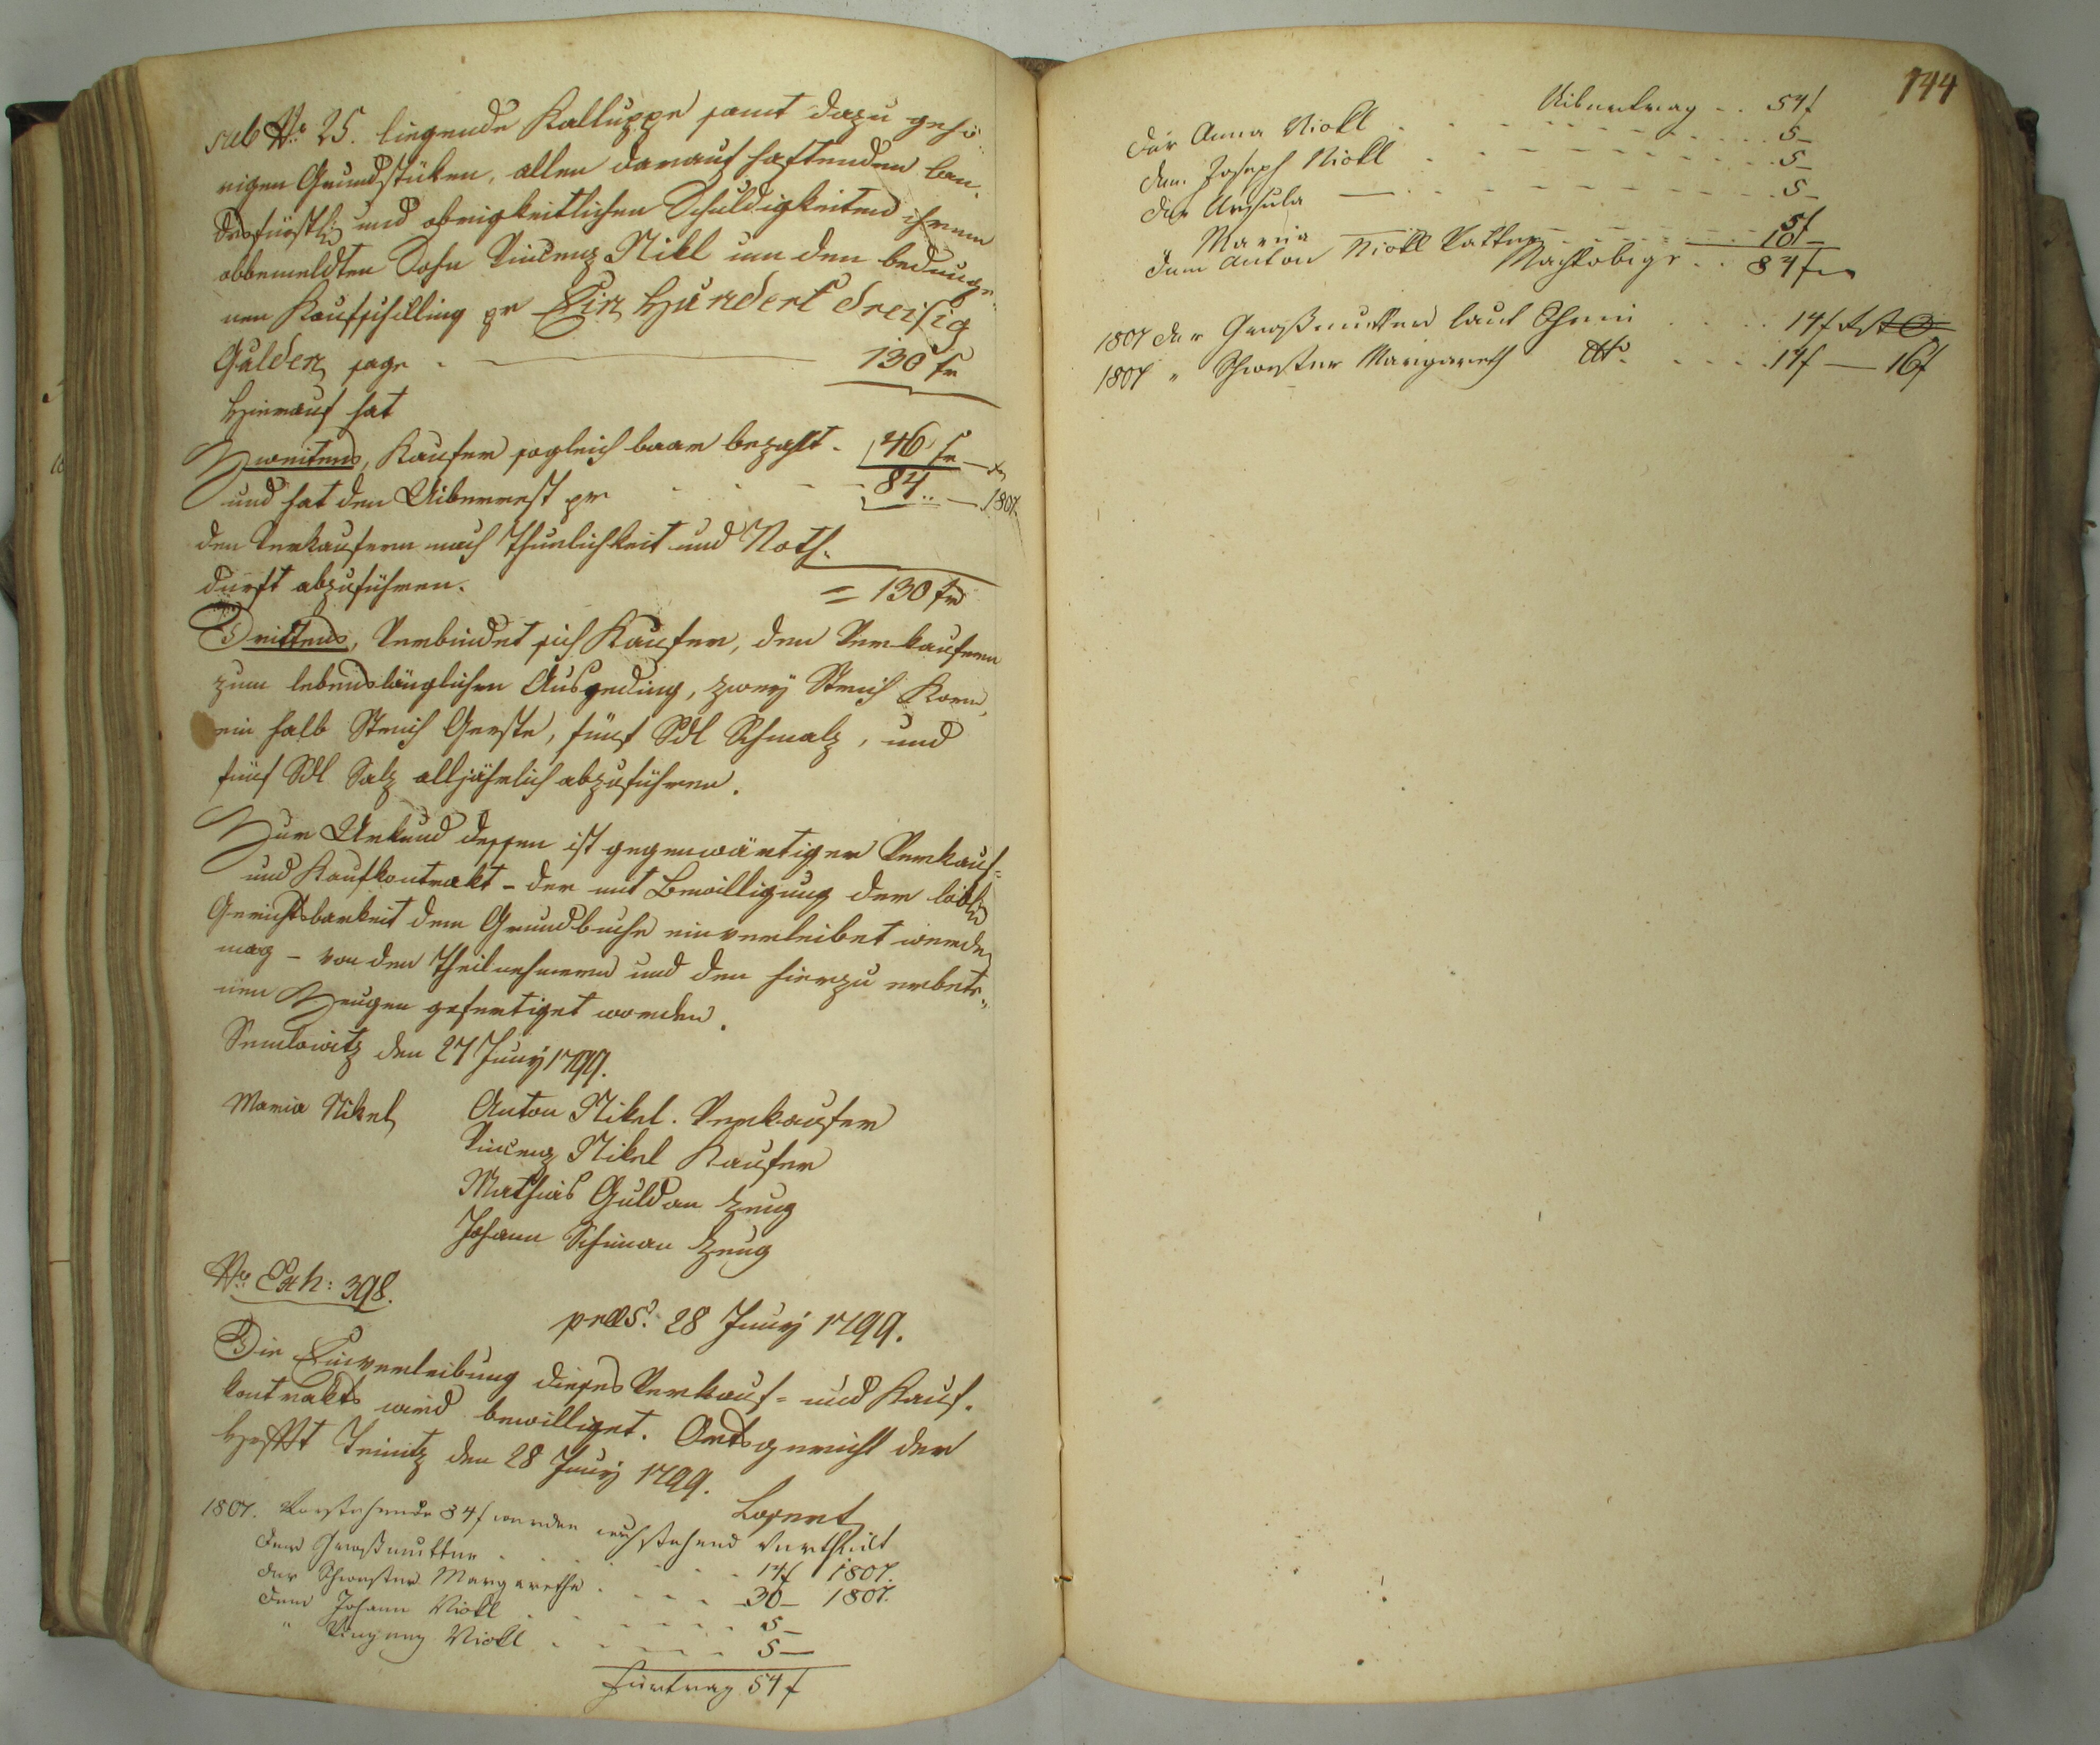 sub No 25. liegende Kalluppe samt dazu gehö-
rigen Grundstüken, allen darauf haftenden lan-
desfürstl: und obrigkeitlichen Schuldigkeiten ihrem
obbemeldten Sohn Vincenz Nikl um den bedunge-
nen Kaufschilling pr Ein Hundert dreisig
Gulden sage - 130 fr
Hierauf hat
Zweitens, Kaufer sogleich baar bezahlt - 46 fr
und hat den Uiberrest pr - 84 .. - 1807
den Verkaufern nach Thunlichkeit und Noth-
durft abzuführen.
= 130 fr
Drittens, Verbindet sich Kaufer, den Verkaufern
zum lebenslänglichen Ausgeding, zwey Strich Korn,
ein halb Strich Gerste, fünf Sdl Schmalz, und
fünf Sdl Salz alljährlich abzuführen.
Zur Urkund dessen ist gegenwärtiger Verkauf-
und Kaufkontrakt - der mit Bewilligung der löbl:
Gerichtsbarkeit dem Grundbuche einverleibet werden
mag - von den Theilnehmern und den hierzu erbete-
nen Zeugen gefertiget worden.
Semlowitz den 27 Juny 1799.
Maria Nikel Anton Nikel. Verkaufer
Vincenz Nikel Kaufer
Mathias Guldan Zeug
Johann Schiman Zeug
No Exh: 398.
praes: 28 Juny 1799.
Die Einverleibung dieses Verkauf- und Kauf-
kontrakts wird bewilliget. Ortsgericht der
Hrfft Teinitz den 28 Juny 1799.
1807. Vorstehende 84 f werden nachstehend vertheilt
der Großmutter - 14 f 1807.
der Schwester Margaretha - 30 - 1807.
dem Johann Niokl - 5 -
" Niokl - 5 -
Fürtrag 54 f
144
Uibertrag - . 54 f
der Anna Niokl - 5 -
dem Joseph Niokl - 5 -
der Ursula - 5 -
Maria - 5 f
dem Anton Niokl Vatter - 10 -
84 f
1807 der Großmutter laut Schein 14 f
1807 " Schwester Margareth 14 f — 16 f